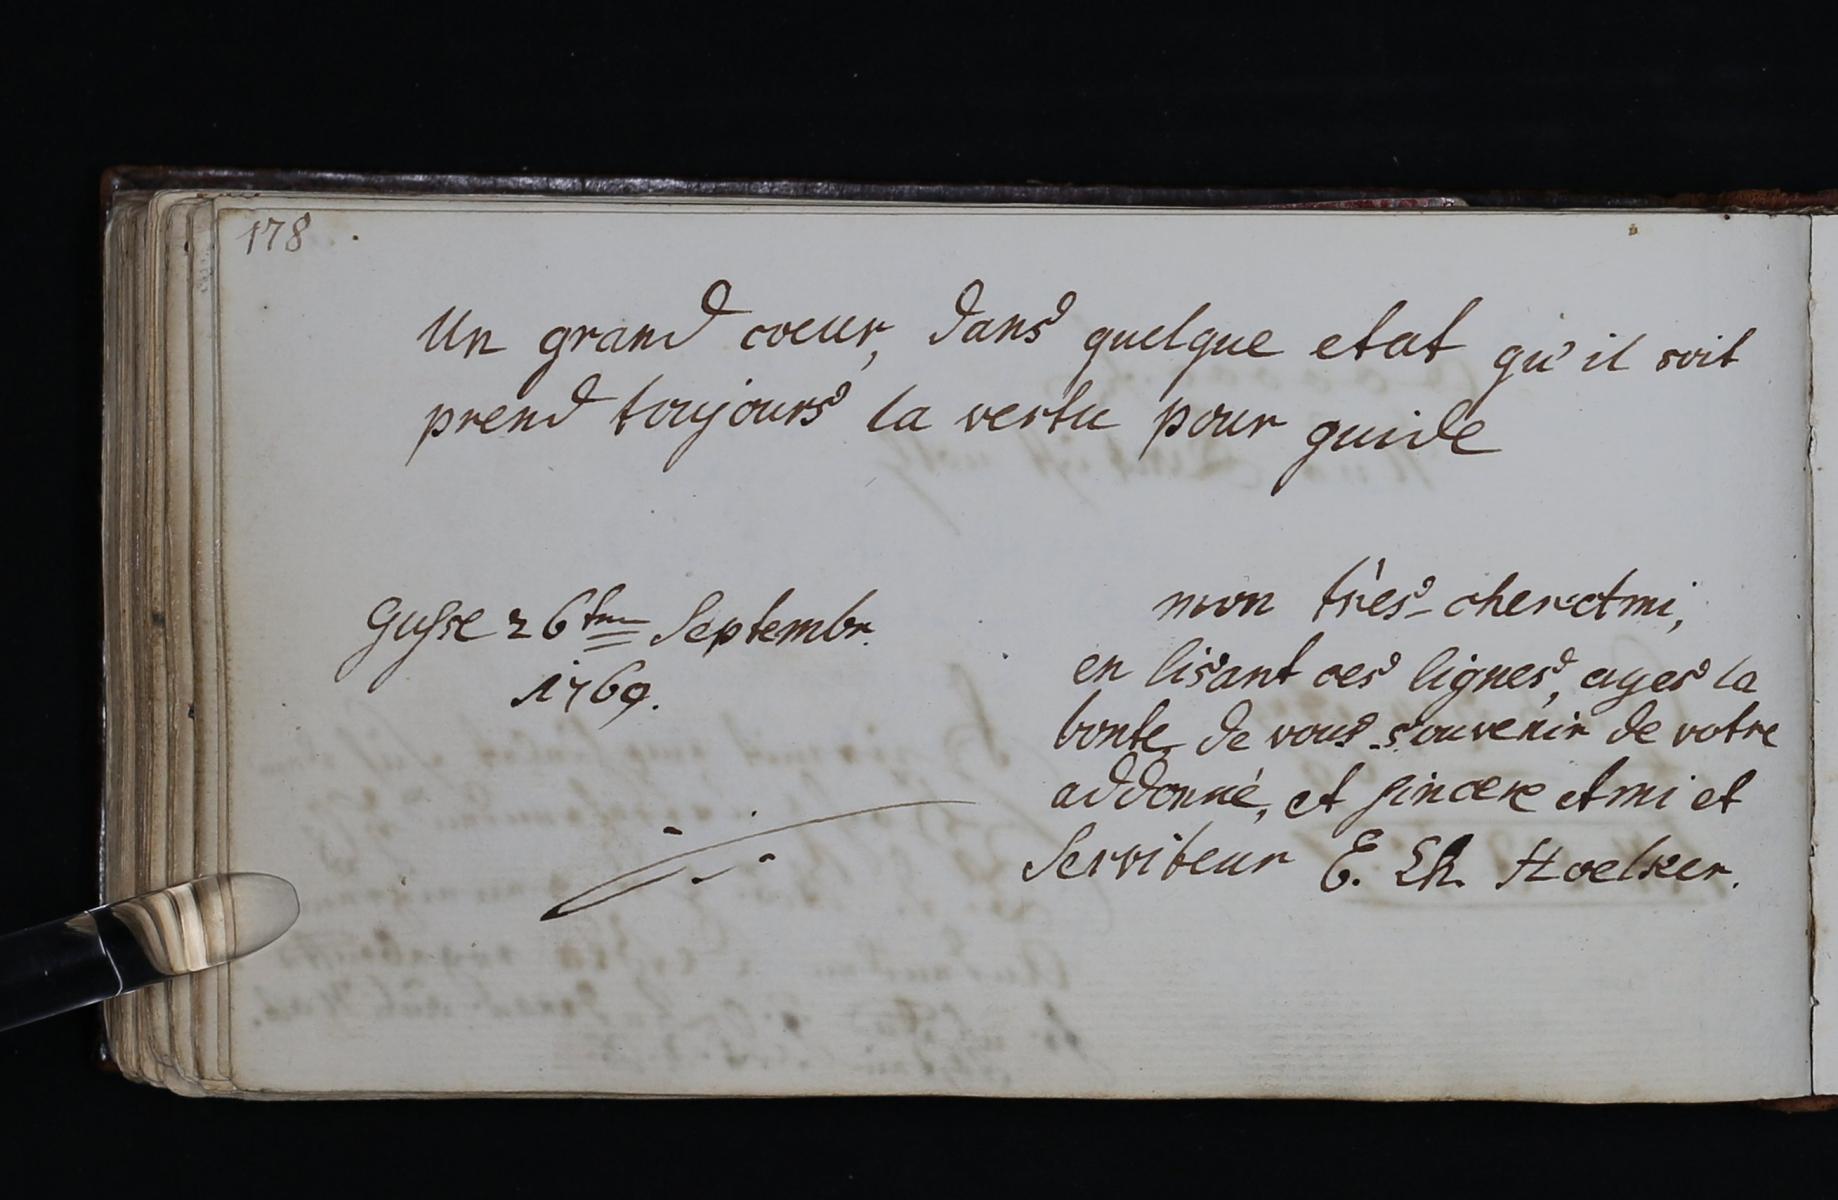 178
Un grand coeur, dans quelque etat qu'il soit
prend toujours la vertu pour guide
26tm Septembr.
1769.
mon très-cher Ami,
en lisant ces lignes, ayes la
bonte de vous souvenir de votre
addonné, et sincere Ami et
Serviteur E. Ch. Hoelker.